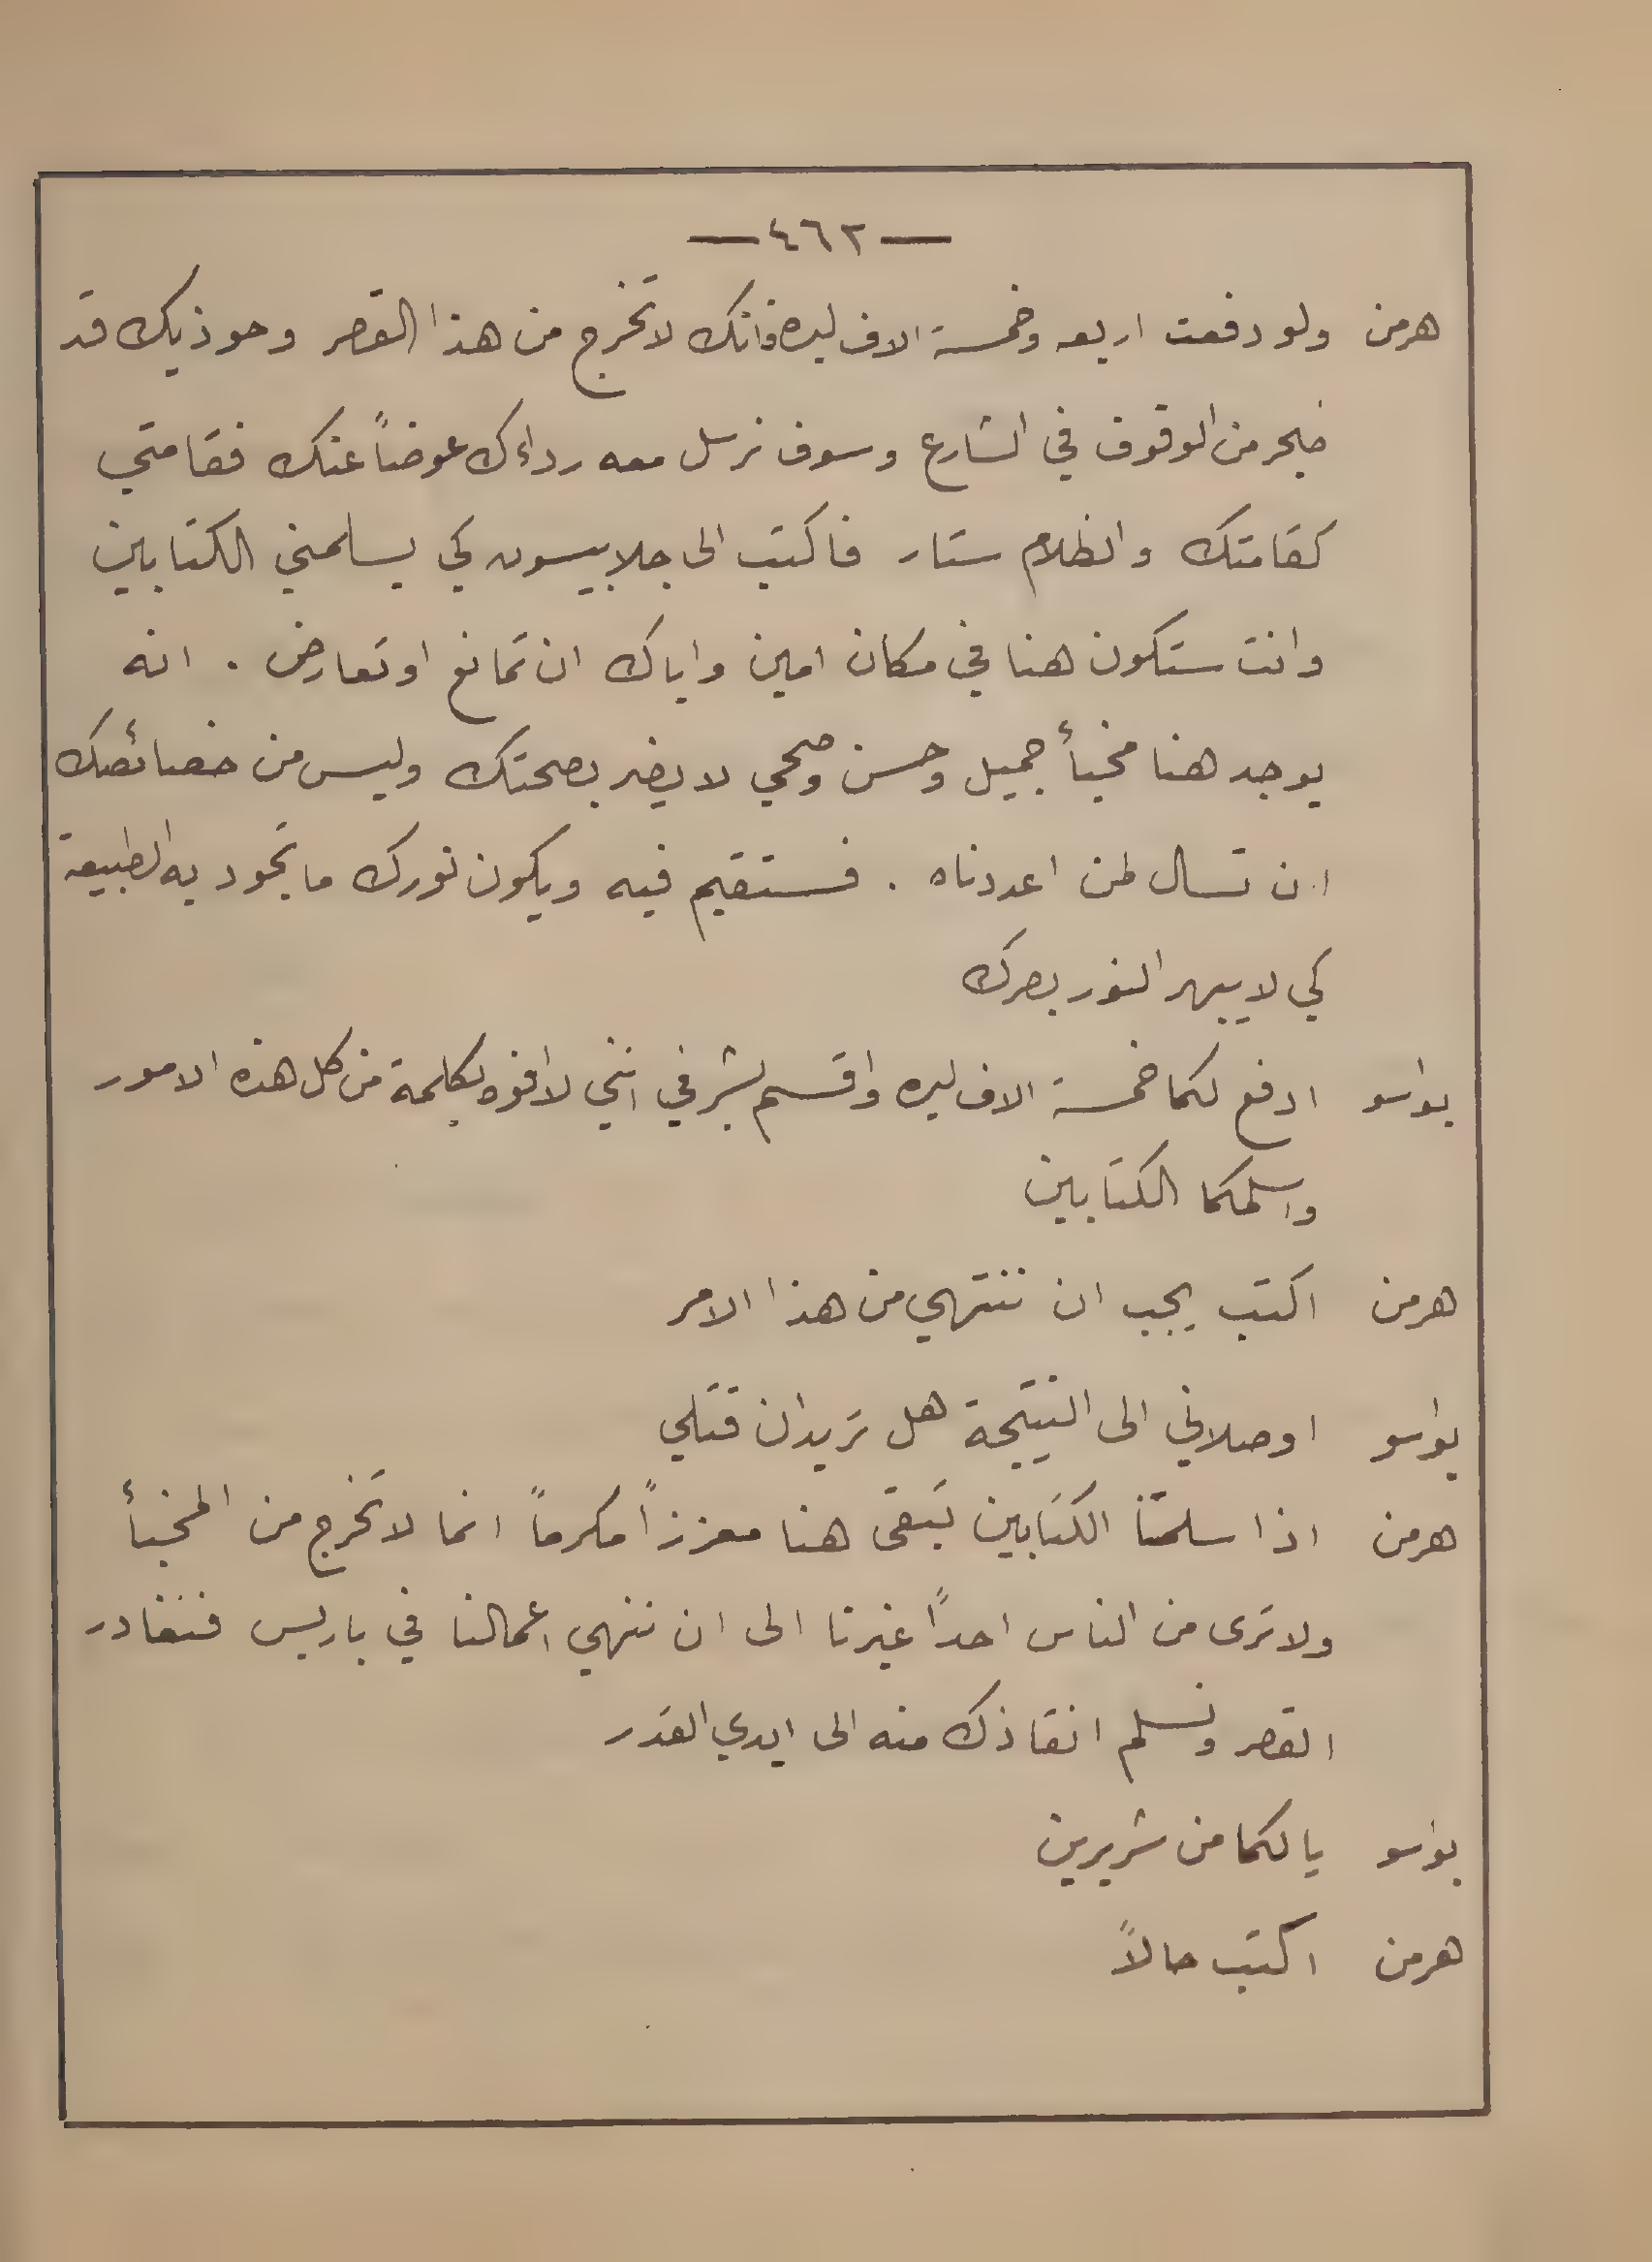 —٤٦٢—
هرمن ولو دفعت اربعه وخمسة الاف ليره فانك لا تخرج من هذا القصر وحوذيك قد
ضجر من الوقوف في الشارع وسوف نرسل معه رداءك عوضاً عنك فقامتي
كقامتك والظلام ستار فاكتب الى جلابيسون كي يسلمني الكتابين
وانت ستكون هنا في مكان امين واياك ان تمانع او تعارض . انه
يوجد هنا مخبأ جميل وحسن وصحي لا يضر بصحتك وليس من خصائصك
ان تسال لمن اعددناه . فستقيم فيه ويكون نورك ما تجود به الطبيعة
كي لا يبهر النور بصرك
بواسو ادفع لكما خمسة الاف ليره واقسم بشرفي انني لا افوه بكلمة من كل هذه الامور
واسلمكما الكتابين
هرمن اكتب يجب ان ننتهي من هذا الامر
بواسو اوصلاني الى النتيجة هل تريدان قتلي
هرمن اذا سلمتنا الكتابين تبقى هنا معززاً مكرماً انما لا تخرج من المخبأ
ولا ترى من الناس احداً غيرنا الى ان ننهي اعمالنا في باريس فنغادر
القصر ونسلم انقاذك منه الى ايدي القدر
بواسو يا لكما من شريرين
هرمن اكتب حالاً